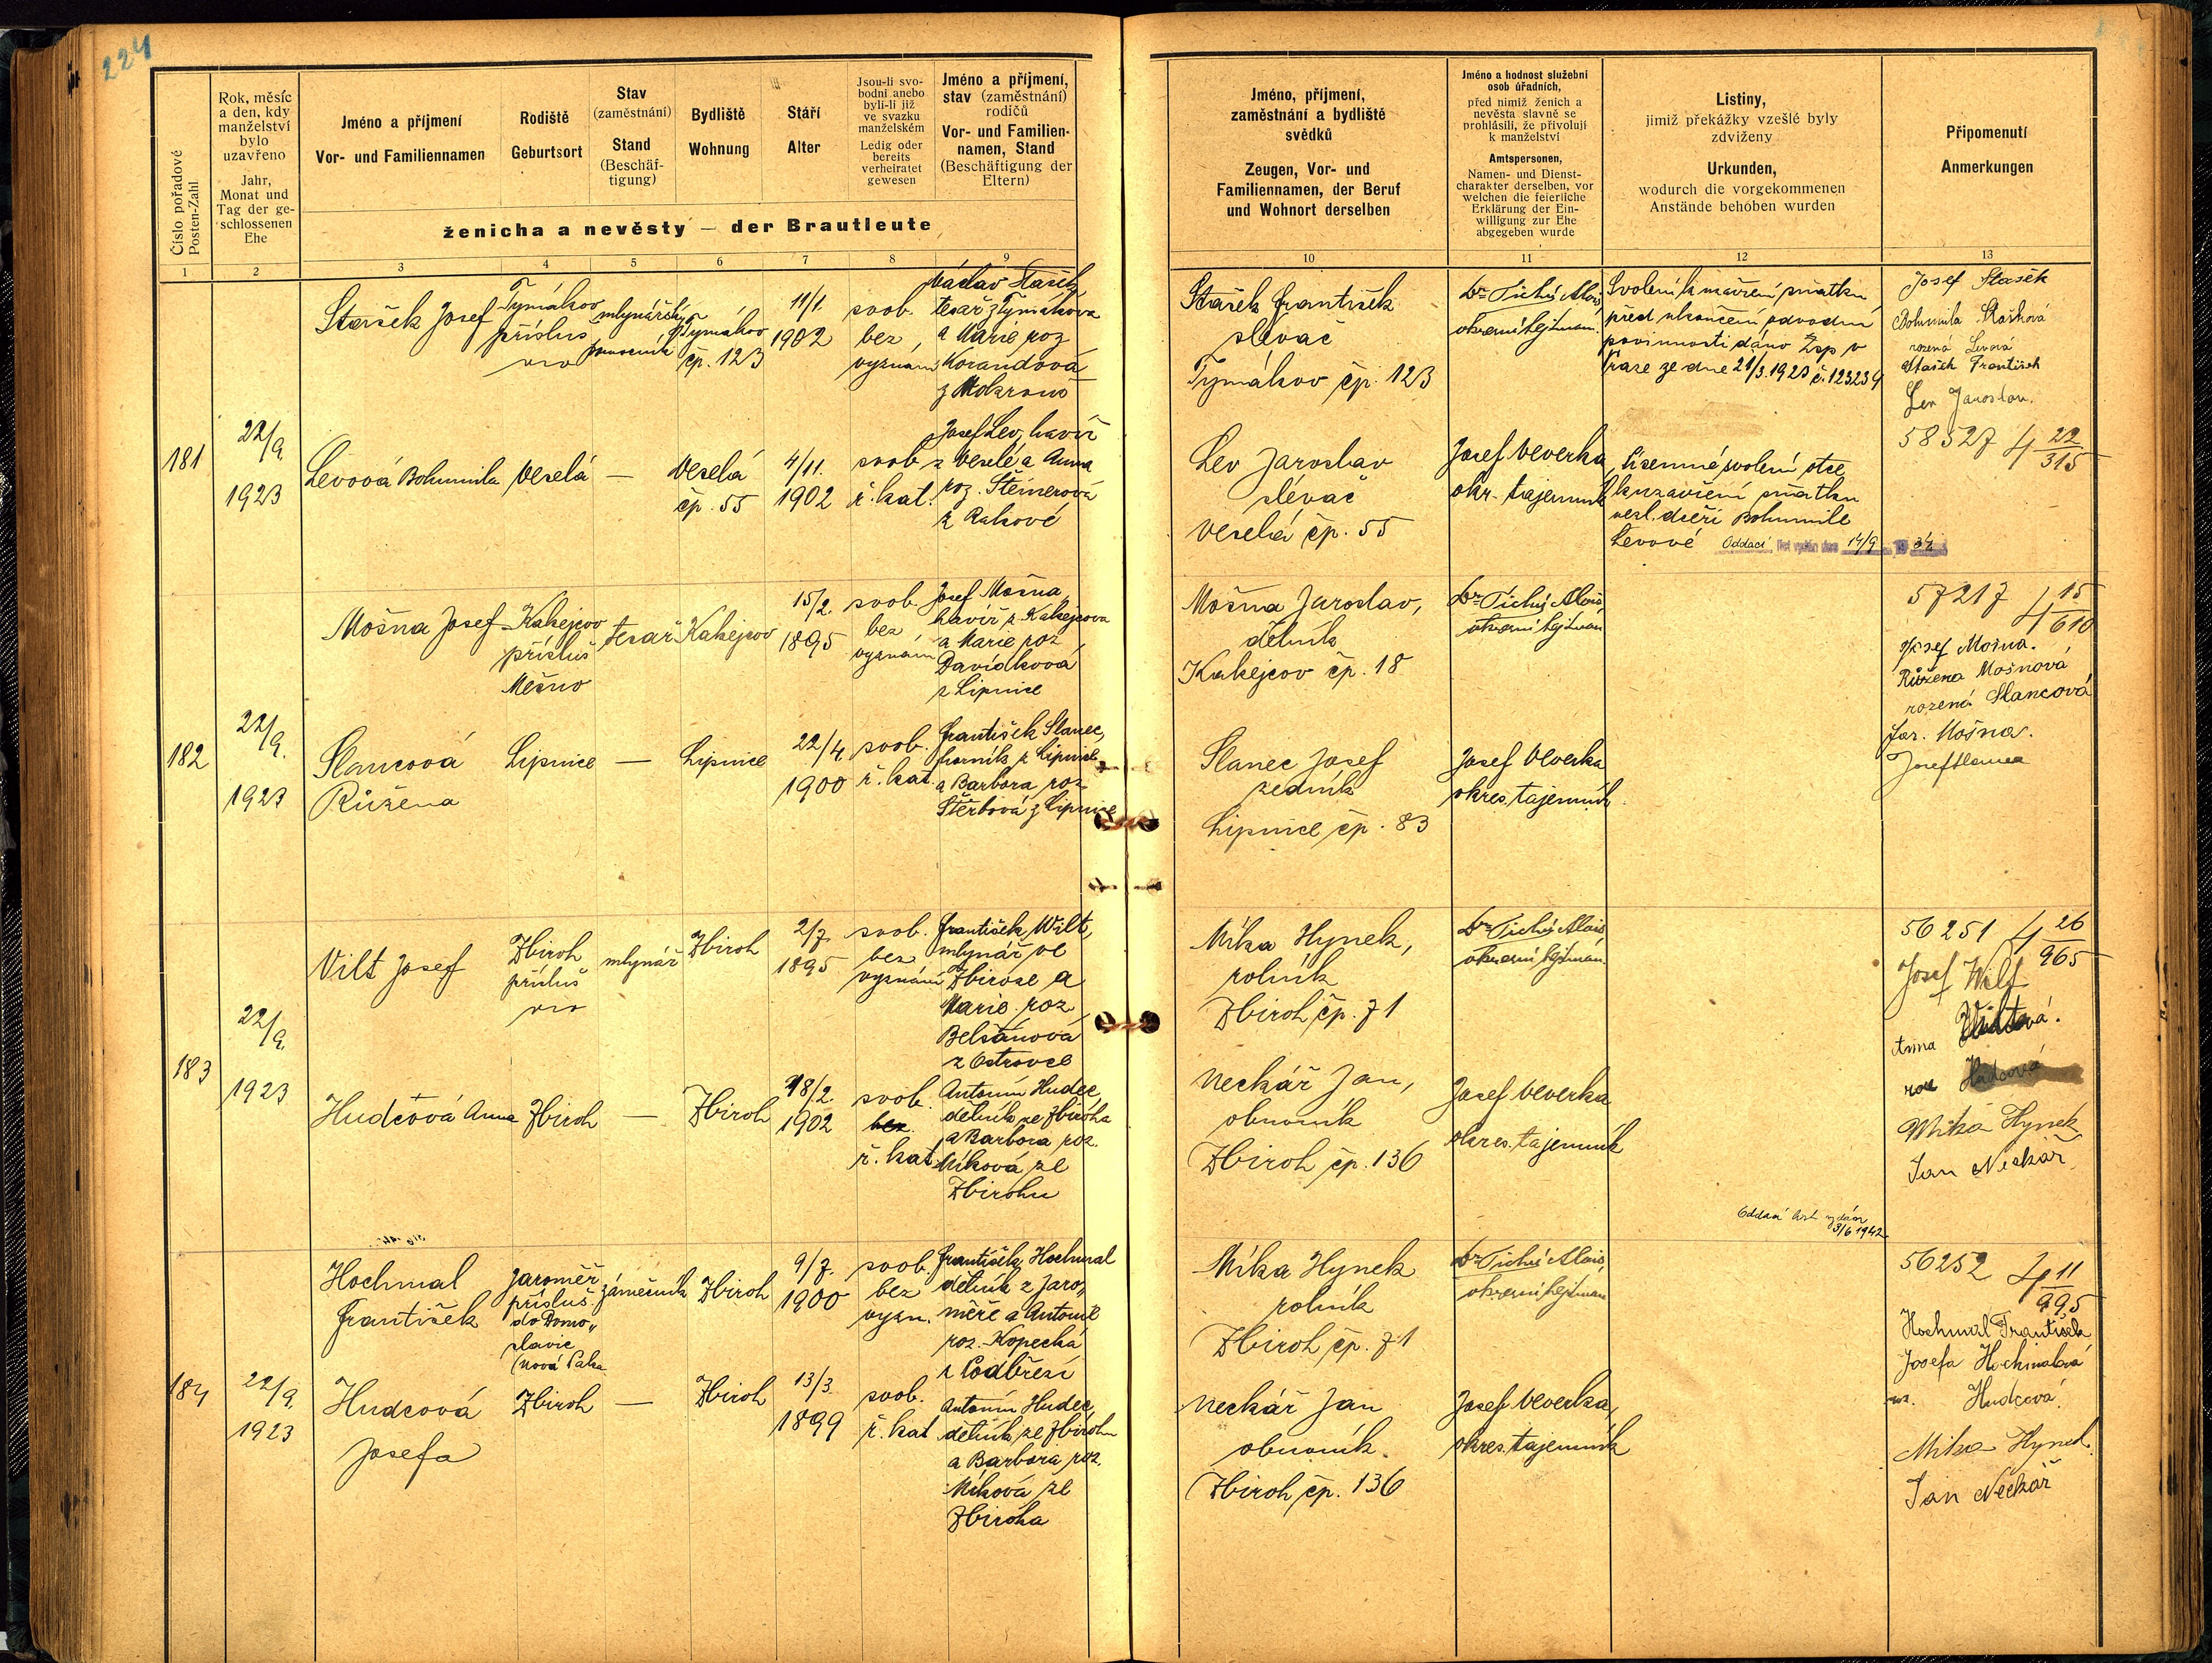 224
Číslo pořadové
Posten-Zahl
Rok, měsíc
a den, kdy
manželství
bylo
uzavřeno
Jahr,
Monat und
Tag der ge-
schlossenen
Ehe
Jméno a příjmení
Vor- und Familiennamen
Rodiště
Geburtsort
Stav
(zaměstnání)
Stand
(Beschäf-
tigung)
Bydliště
Wohnung
Stáří
Alter
Jsou-li svo-
bodni anebo
byli-li již
ve svazku
manželském
Ledig oder
bereits
verheiratet
gewesen
Jméno a příjmení,
stav (zaměstnání)
rodičů
Vor- und Familien-
namen, Stand
(Beschäftigung der
Eltern)
ženicha a nevěsty — der Brautleute
Jméno, příjmení,
zaměstnání a bydliště
svědků
Zeugen, Vor- und
Familiennamen, der Beruf
und Wohnort derselben
Jméno a hodnost služební
osob úřadních,
před nimiž ženich a
nevěsta slavně se
prohlásili, že přivolují
k manželství
Amtspersonen,
Namen- und Dienst-
charakter derselben, vor
welchen die feierliche
Erklärung der Ein-
willigung zur Ehe
abgegeben wurde
Listiny,
jimiž překážky vzešlé byly
zdviženy
Urkunden,
wodurch die vorgekommenen
Anstände behoben wurden
Připomenutí
Anmerkungen
1 2 3 4 5 6 7 8 9 10 11 12 13
181
22/9.
1923
Stašek Josef
Tymákov
přísluš
mlynářský
Tymákov
čp. 123
11/1.
1902
svob.
bez
vyznání
Václav Stašek,
tesař z Tymákova
a Marie roz
Korandová
z Mokrouš
Stašek František
slévač
Tymákov čp. 123
Dr Tichý Alois,
okresní hejtman.
Svolení k uzavření sňatku
před ukončení odvodní
povinnosti dáno Zsp v
Praze ze dne 21/3.1923 č. 123239
Josef Stašek
Bohumila Stašková
rozená Levová
Stašek František
Lev Jaroslav.
Levová Bohumila
Veselá
—
Veselá
čp. 55
4/11.
1902
svob
ř. kat.
Josef Lev, havíř
z Veselé a Anna
roz. Steinerová
z Rakové
Lev Jaroslav
slévač
Veselá čp. 55
Josef Veverka
okr. tajemník
Písemné svolení otce
k uzavření sňatku
nezl. dceři Bohumile
Levové
Oddací list vydán dne 14/9
58527 4 22/315
182
22/9.
1923
Mošna Josef
Kakejcov
přísluš
Mešno
tesař
Kakejcov
15/2.
1895
svob.
bez
vyznání
Josef Mošna,
havíř z Kakejcova
a Marie roz
Davídková
z Lipnice
Mošna Jaroslav,
dělník
Kakejcov čp. 18
Dr Tichý Alois,
okresní hejtman
57217 4 15/610
Josef Mošna.
Růžena Mošnová
rozená Slancová
Jar. Mošna.
Josef Slanec
Slancová
Růžena
Lipnice
—
Lipnice
22/4.
1900
svob.
ř. kat.
František Slanec,
horník z Lipnice
a Barbora roz
Štěrbová z Lipnice
Slanec Josef
zedník
Lipnice čp. 83
Josef Veverka
okres. tajemník
183
22/9.
1923
Vilt Josef
Zbiroh
přísluš
mlynář
Zbiroh
2/7.
1895
svob.
bez
vyznání
František Wilt,
mlynář ve
Zbiroze a
Marie roz
Belšanová
z Ostrovce
Míka Hynek,
rolník
Zbiroh čp. 71
Dr Tichý Alois,
okresní hejtman.
56251 4 26/965
Josef Wilt
Anna Viltová.
roz Hudcová
Mika Hynek
Jan Neckář
Hudcová Anna
Zbiroh
—
Zbiroh
18/2.
1902
svob.
bez
ř. kat
Antonín Hudec,
dělník ze Zbiroha
a Barbora roz.
Míková ze
Zbirohu
Neckář Jan,
obuvník
Zbiroh čp. 136
Josef Veverka
okres. tajemník
Oddací list vydán
3/6 1942
184
22/9.
1923
Hochmal
František
Jaroměř
přísluš
do Domo„
slavic
(Nová Paka
zámečník
Zbiroh
9/7.
1900
svob.
bez
vyzn.
František Hochmal
dělník z Jaro„
měře a Antonie
roz. Kopecká
z Podbřezí
Míka Hynek
rolník
Zbiroh čp. 71
Dr Tichý Alois,
okresní hejtman
56252 4 11/995
Hochmal František
Josefa Hochmalová
roz. Hudcová.
Mika Hynek.
Jan Neckář
Hudcová
Josefa
Zbiroh
—
Zbiroh
13/3.
1899
svob.
ř. kat
Antonín Hudec,
dělník ze Zbirohu
a Barbora roz.
Míková ze
Zbiroha
Neckář Jan
obuvník.
Zbiroh čp. 136
Josef Veverka,
okres. tajemník